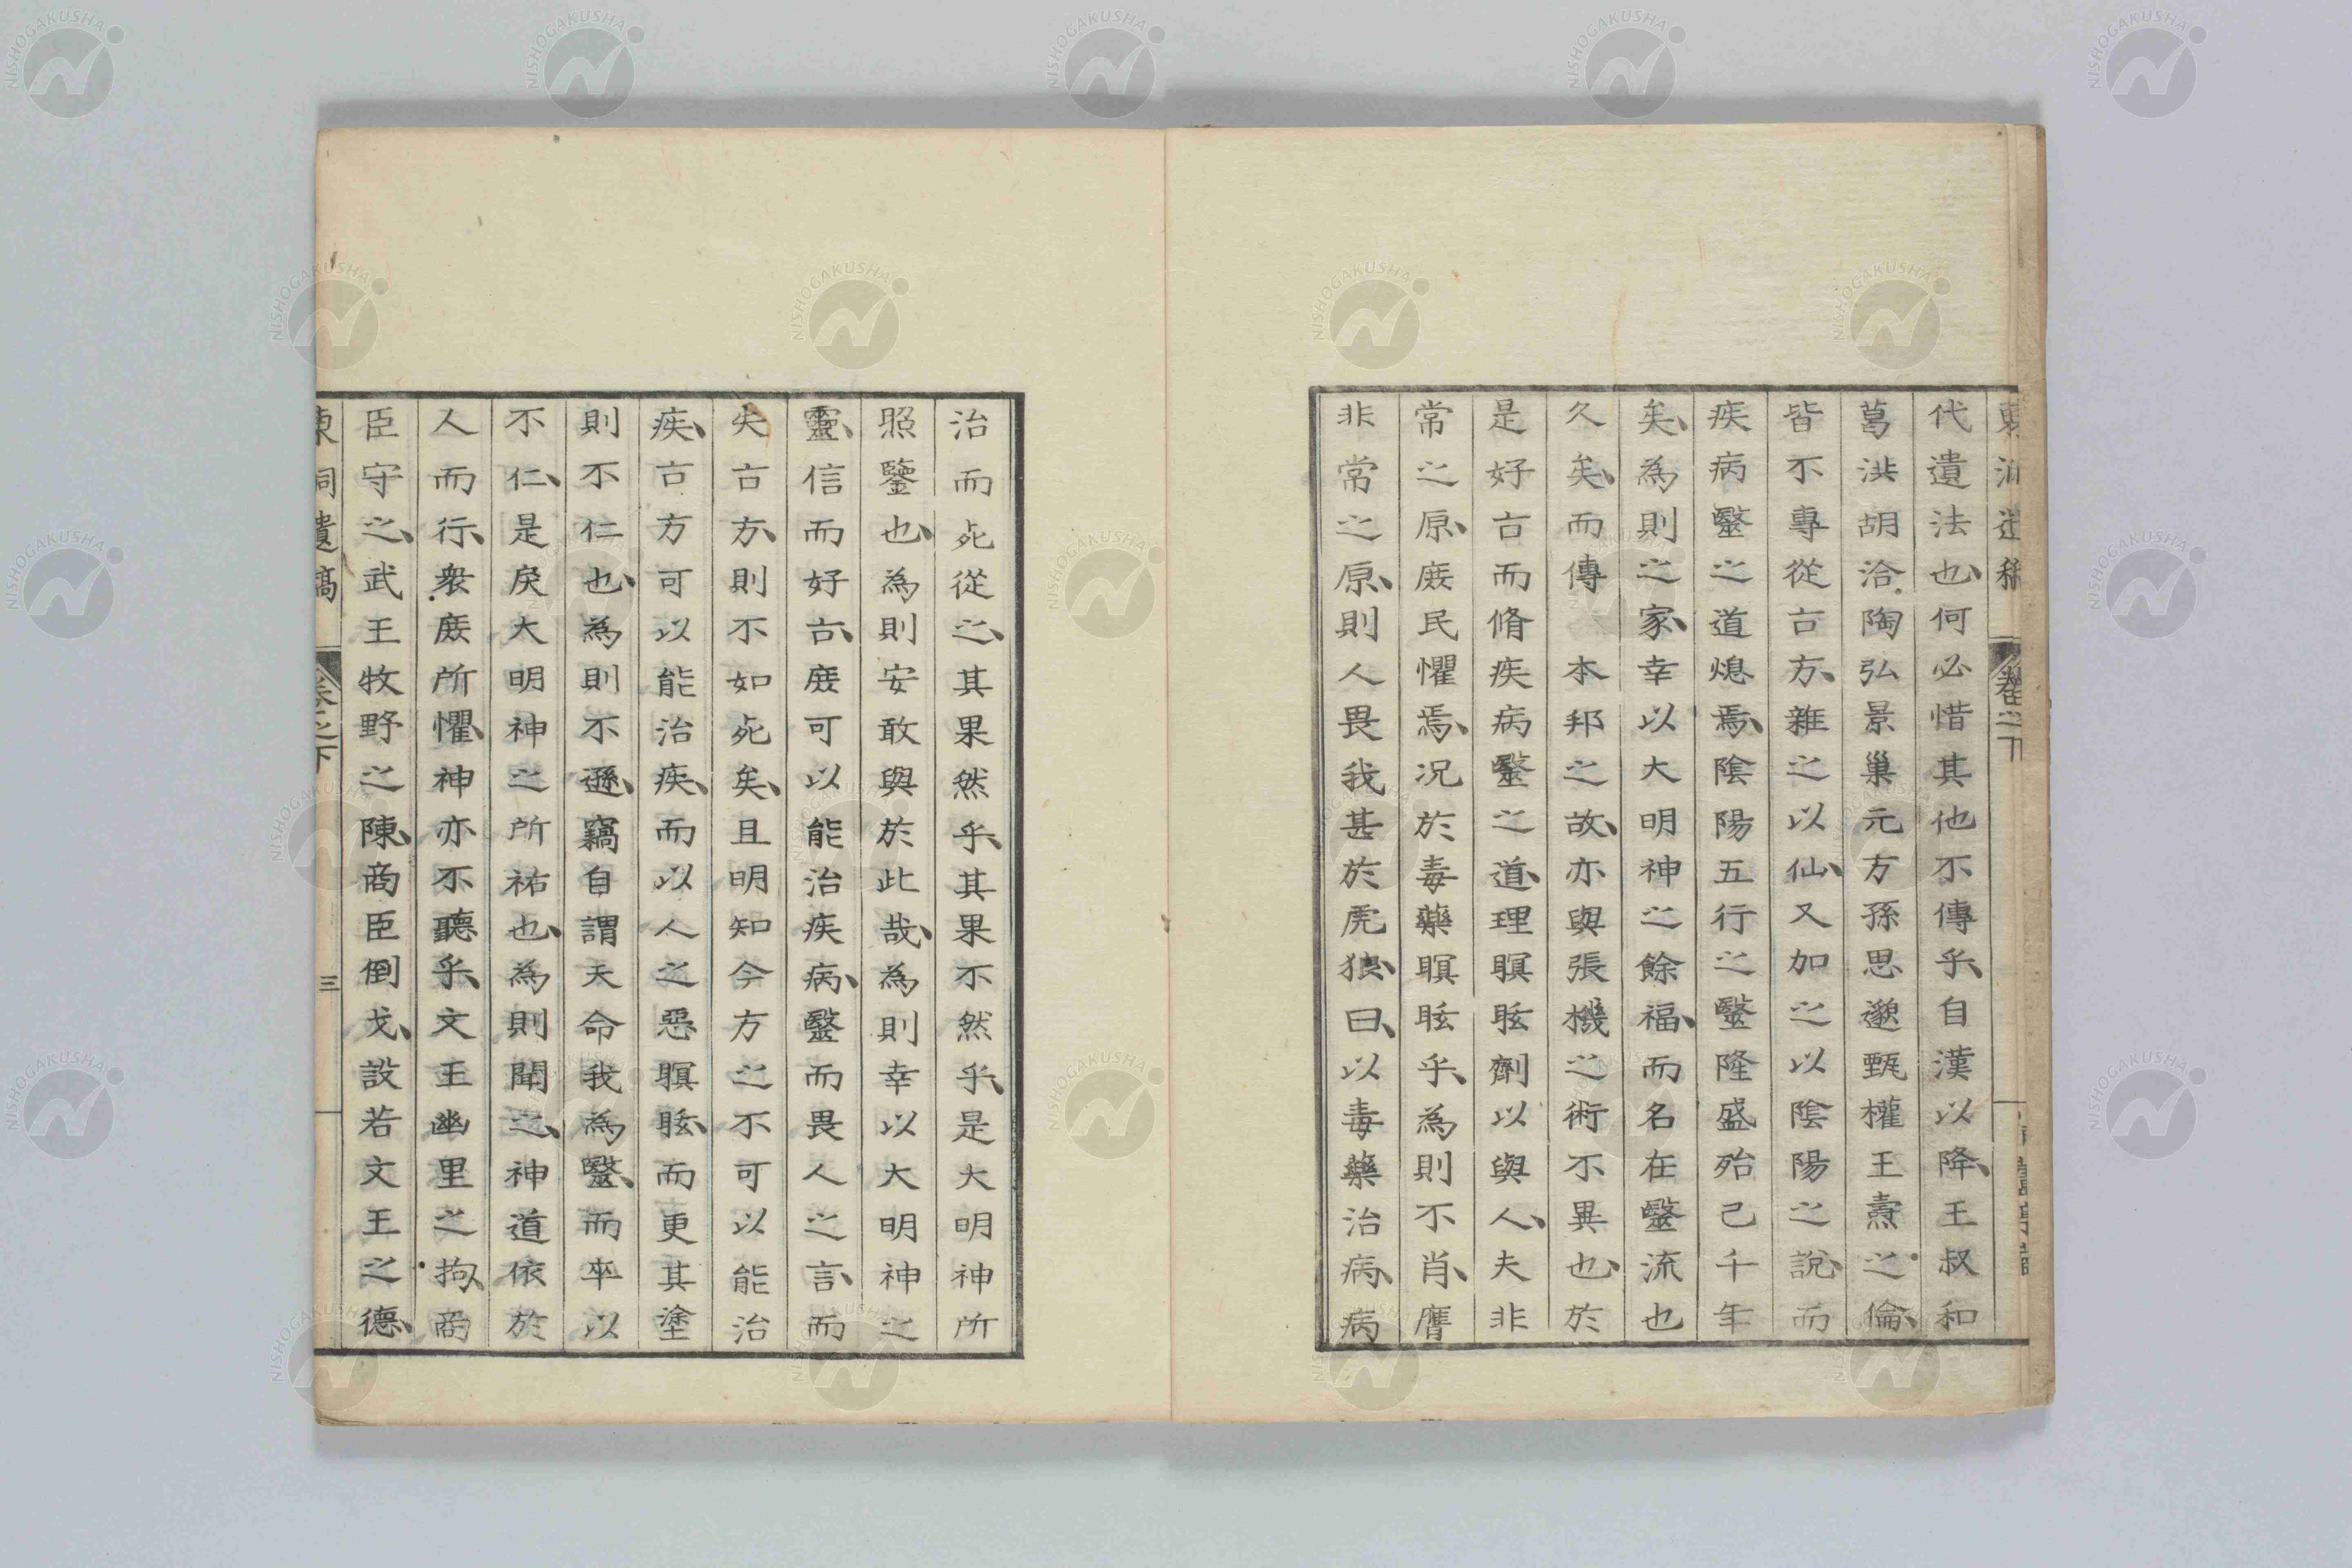 代遺法也、何必惜其他不傳乎、自漢以降、王叔和
葛洪胡洽陶弘景巢元方孫思邈甄權王燾之倫、
皆不專從古方、雜之以仙、又加之以陰陽之說、而
疾病毉之道熄焉、陰陽五行之毉隆盛殆已千年
矣、為則之家、幸以大明神之餘福、而名在毉流也
久矣、而傳 本邦之故、亦與張機之術不異也、於
是好古而脩疾病毉之道、理瞑眩劑以與人、夫非
常之原、庶民懼焉、況於毒藥瞑眩乎、為則不肖、膺
非常之原、則人畏我甚於虎狼、曰、以毒藥治病、病
治而死從之、其果然乎、其果不然乎、是大明神所
照鑒也、為則安敢與於此哉、為則幸以大明神之
靈、信而好古、庶可以能治疾病、毉而畏人之言、而
失古方、則不如死矣、且明知今方之不可以能治
疾、古方可以能治疾、而以人之惡瞑眩、而更其塗
則不仁也、為則不遜、竊自謂天命我為毉、而卒以
不仁、是戾大明神之所祐也、為則聞之、神道依於
人而行、衆庶所懼、神亦不聽乎、文王幽里之拘、商
臣守之、武王牧野之陳、商臣倒戈、設若文王之德、
東洞遺稿 卷之下 三
NISHOGAKUSHA